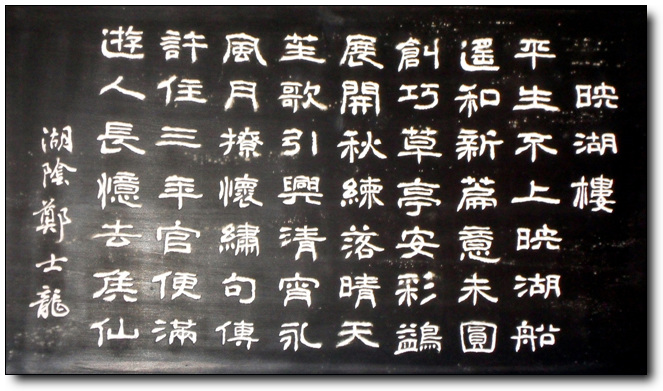 映湖樓
平生不上映湖船
遙和新篇意未圓
創巧草亭安彩鷁
展開秋練落晴天
笙歌引興清宵永
風月撩懷繡句傳
許住三年官便滿
遊人長憶去侯仙
湖陰鄭士龍